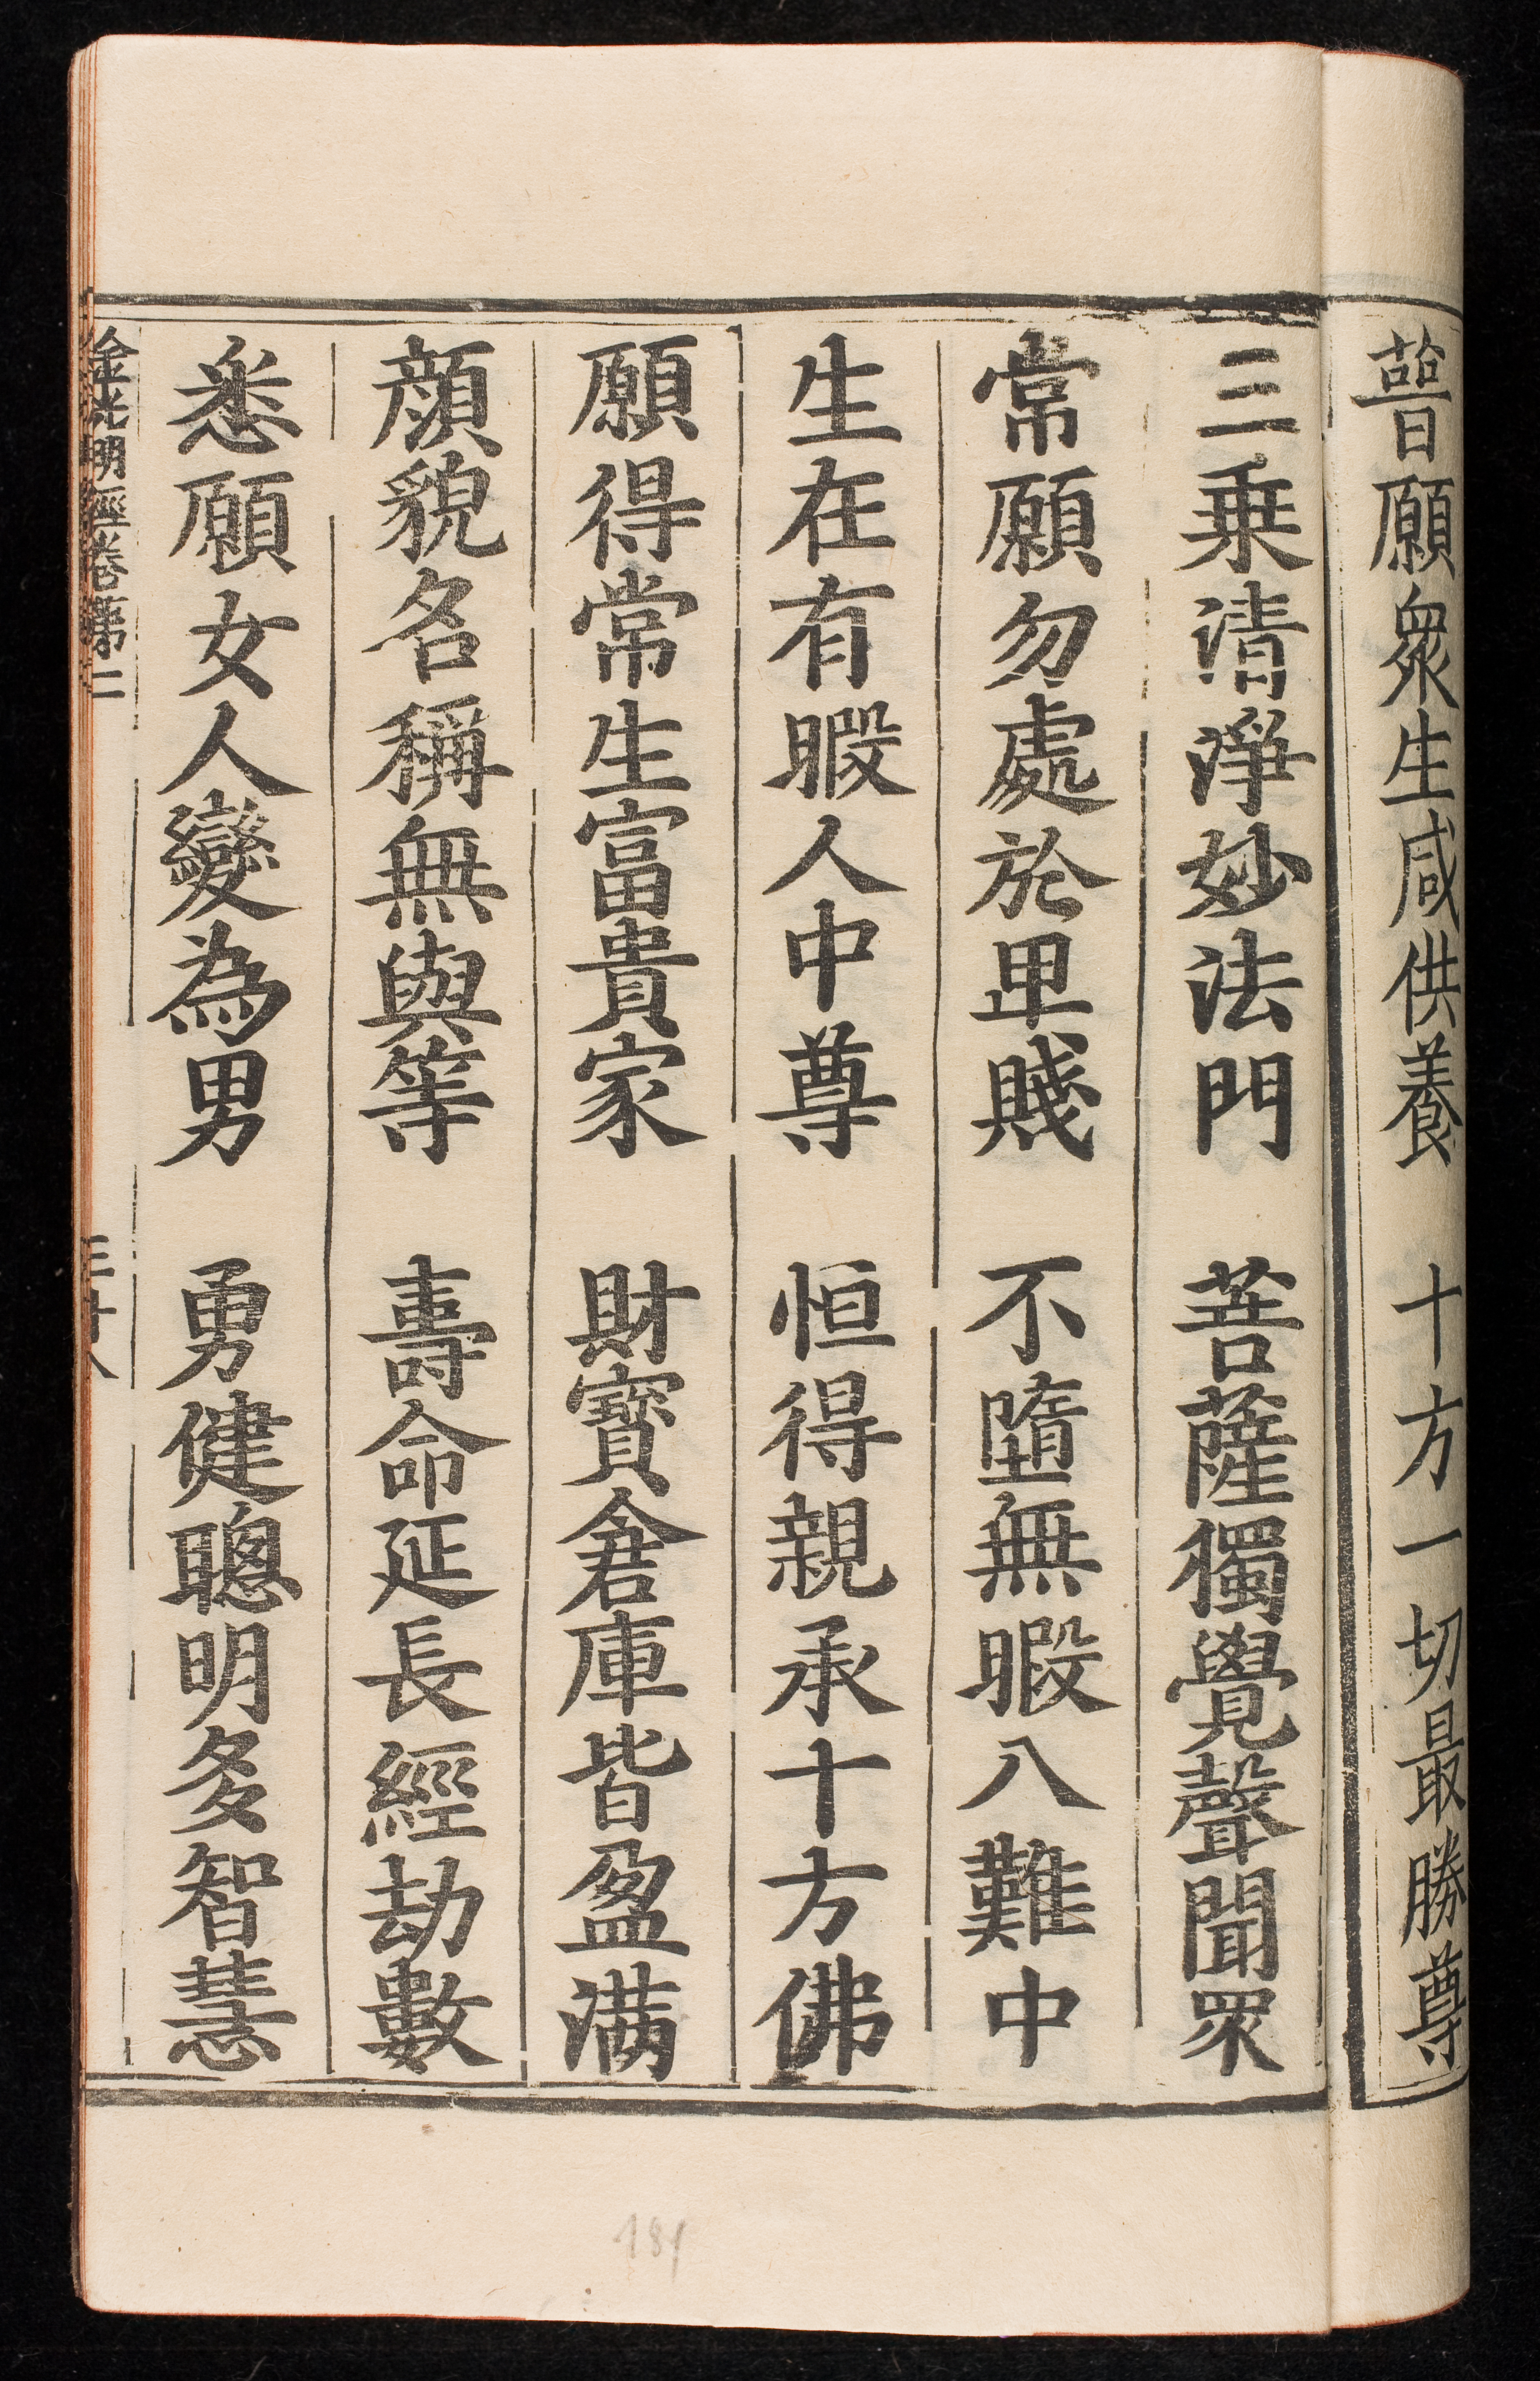 普願眾生咸供養　十方一切最勝尊
三乗清淨妙法門　菩薩獨覺聲聞眾
常願勿處於卑賤　不墮無暇八難中
生在有暇人中尊　恒得親承十方佛
願得常生富貴家　財寶倉庫皆盈满
顔貌名稱無與等　壽命延長經劫數
悉願女人變為男　勇健聰明多智慧
金光明經卷第二
181